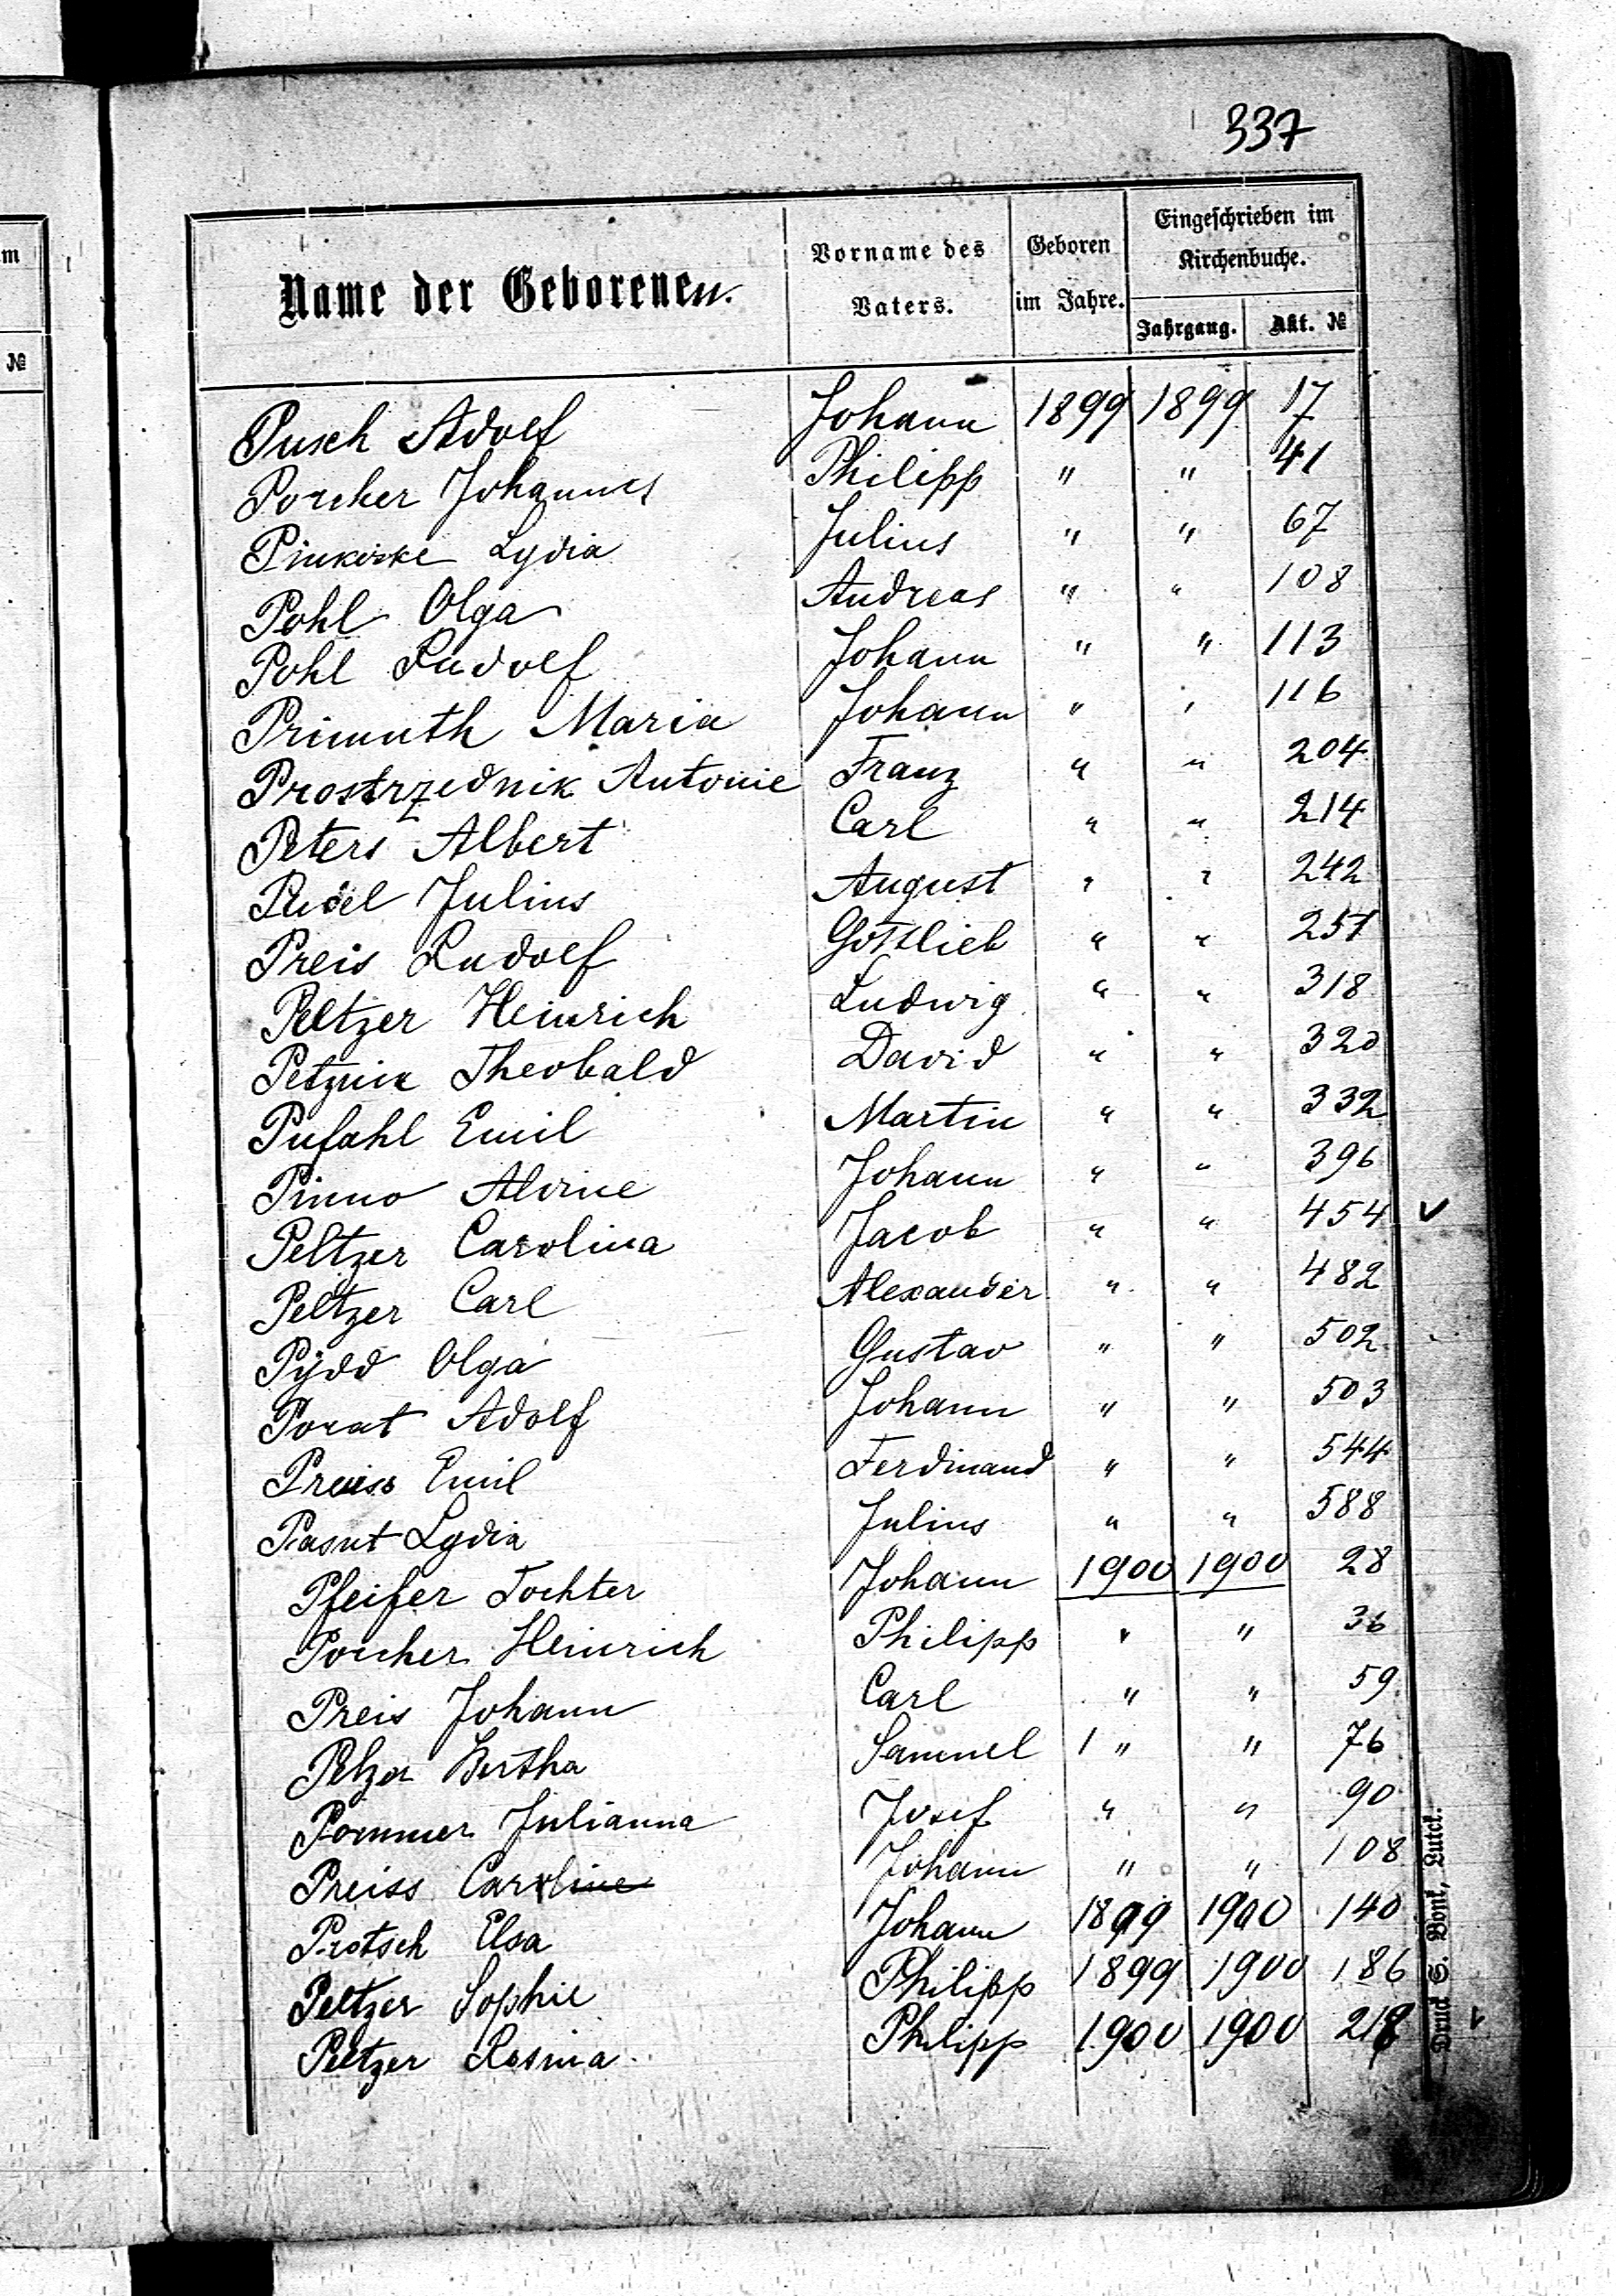 337
Name der Geborenen. Vorname des Vaters. Geboren im Jahre. Eingeschrieben im Kirchenbuche.
Jahrgang. Akt. №
Pusch Adolf Johann 1899 1899 17
Porcher Johannes Philipp " " 41
Pinkoske Lydia Julius " " 67
Pohl Olga Andreas " " 108
Pohl Rudolf Johann " " 113
Primuth Maria Johann " " 116
Prostrzednik Antonie Franz " " 204
Peters Albert Carl " " 214
Julius August " " 242
Preis Rudolf Gottlieb " " 251
Peltzer Heinrich Ludwig " " 318
Theobald David " " 320
Pufahl Emil Martin " " 332
Pinno Alvine Johann " " 396
Peltzer Carolina Jacob " " 454 ✓
Peltzer Carl Alexander " " 482
Pydd Olga Gustav " " 502
Porat Adolf Johann " " 503
Preiss Emil Ferdinand " " 544
Pasut Lydia Julius " " 588
Pfeifer Tochter Johann 1900 1900 28
Porcher Heinrich Philipp " " 36
Preis Johann Carl " " 59
Pelzer Bertha Samuel " " 76
Pommer Julianna Josef " " 90
Preiss Johann " " 108
Protsch Elsa Johann 1899 1900 140
Peltzer Sophie Philipp 1899 1900 186
Peltzer Rosina Philipp 1900 1900 218
Druck S. Bonk, Lutck.
m
№